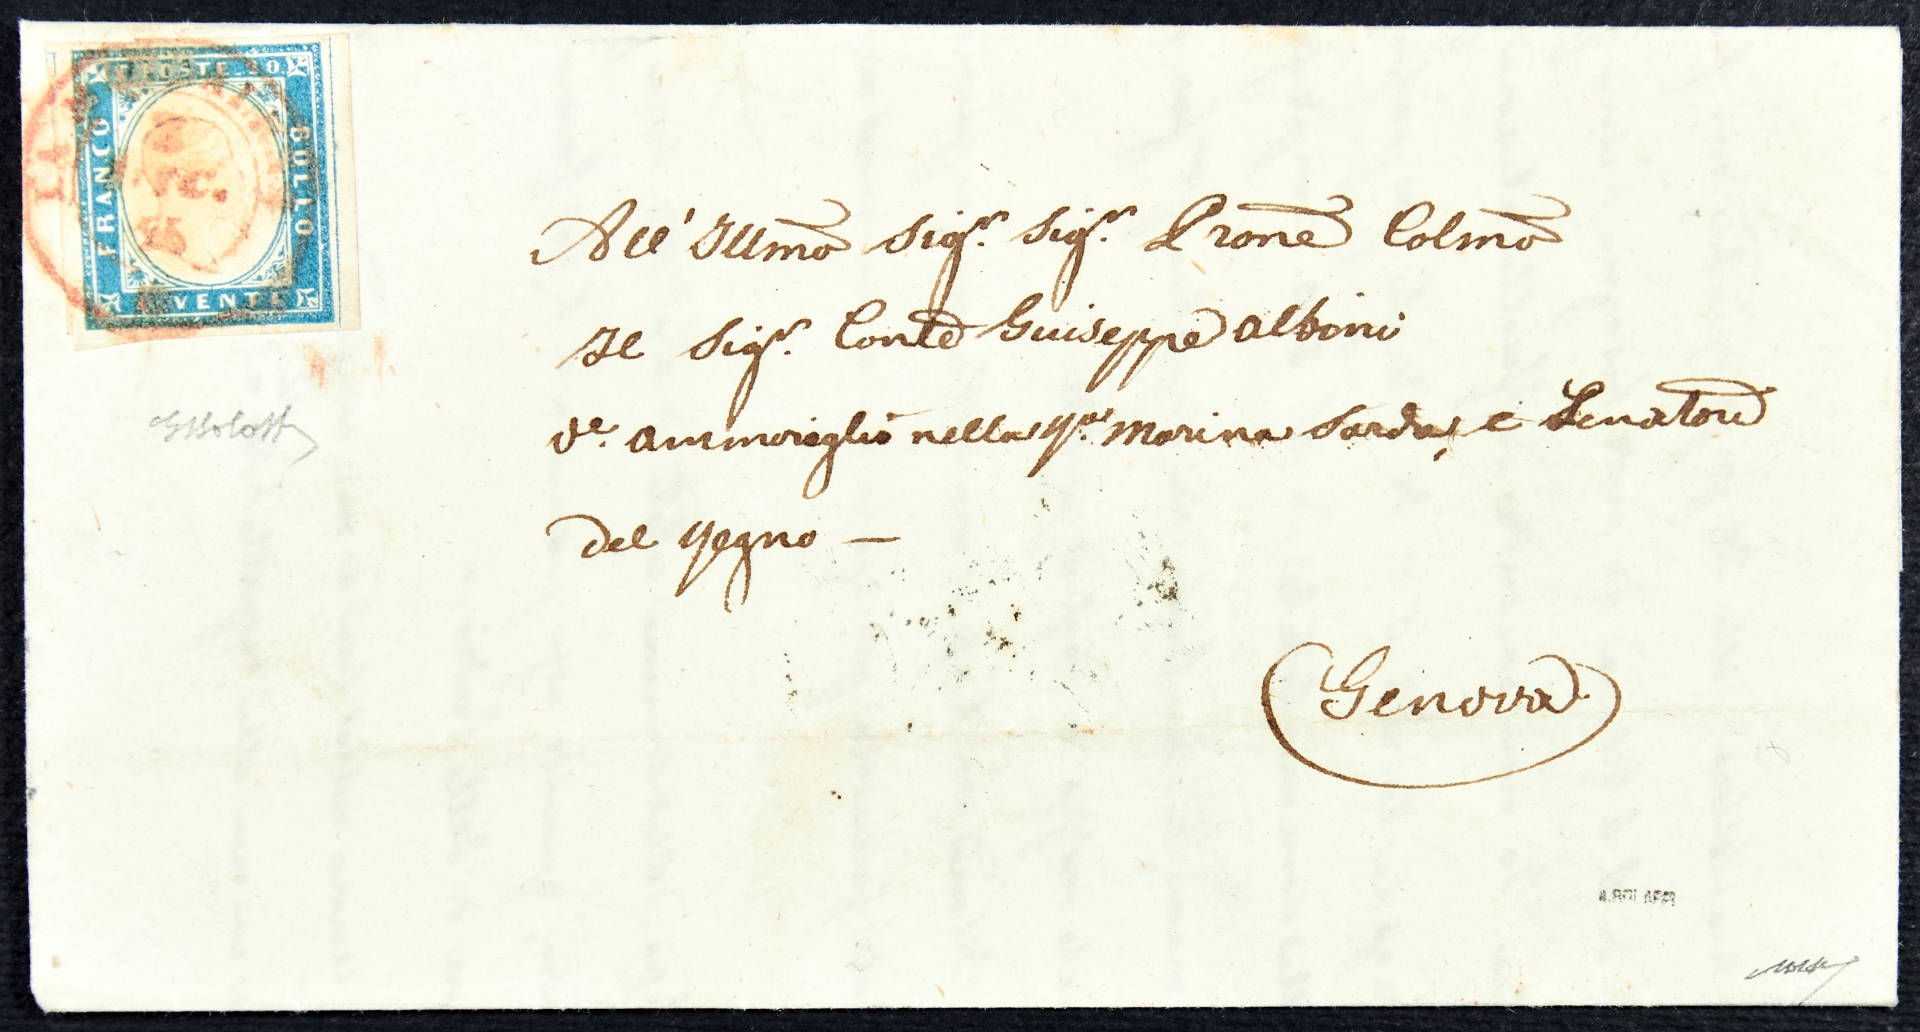 C. POSTE 20
FRANCO
BOLLO
C. VENTI
All' Illmo Sigr. Sigr. Prone Colmo
Il Sigr. Conte Giuseppe Albini
Ve. Ammiraglio nella Ra. Marina Sarda, e Senatore
del Regno —
Genova
A.BOLAFFI